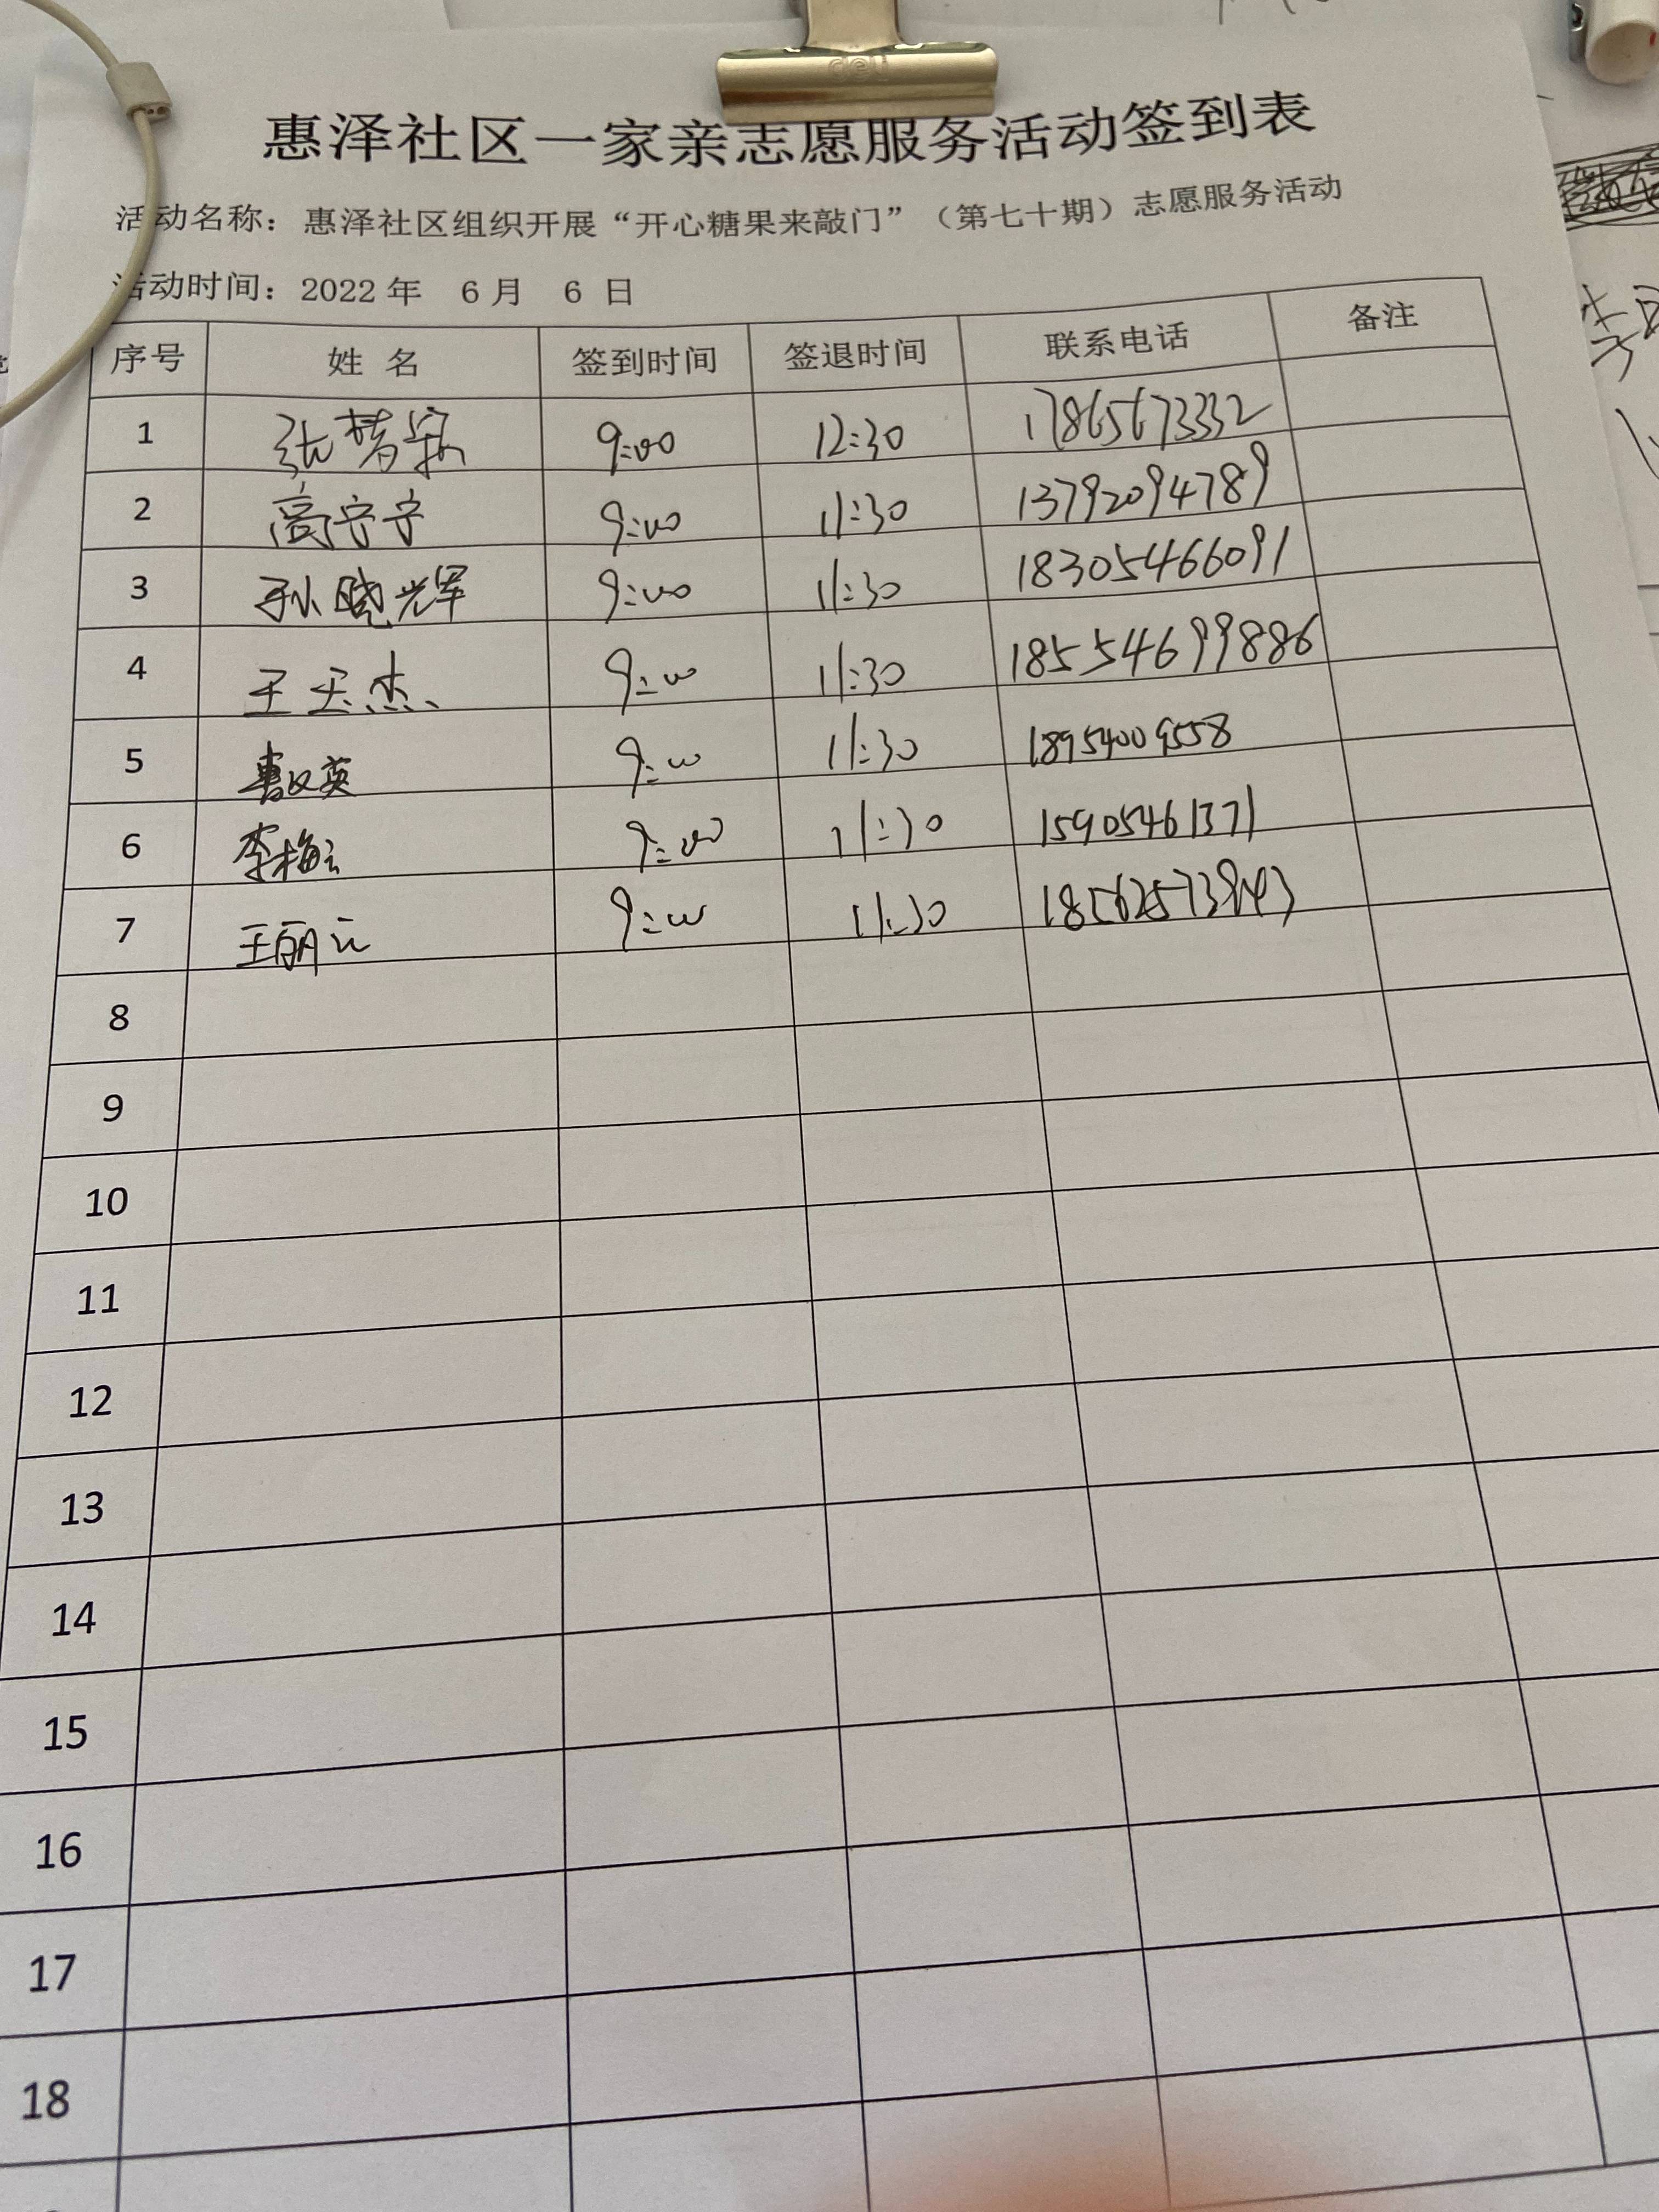 惠泽社区一家亲志愿服务活动签到表
活动名称：惠泽社区组织开展“开心糖果来敲门”（第七十期）志愿服务活动
活动时间：2022 年 6 月 6 日
序号 姓 名 签到时间 签退时间 联系电话 备注
1 张 9:00 12:30 17865673332
2 高宁宁 9:00 11:30 13792094789
3 孙晓辉 9:00 11:30 18305466091
4 王天杰 9:00 11:30 18554699886
5 英 9:00 11:30 18954009558
6 李梅云 9:00 11:30 15905461371
7 王丽云 9:00 11:30
8
9
10
11
12
13
14
15
16
17
18